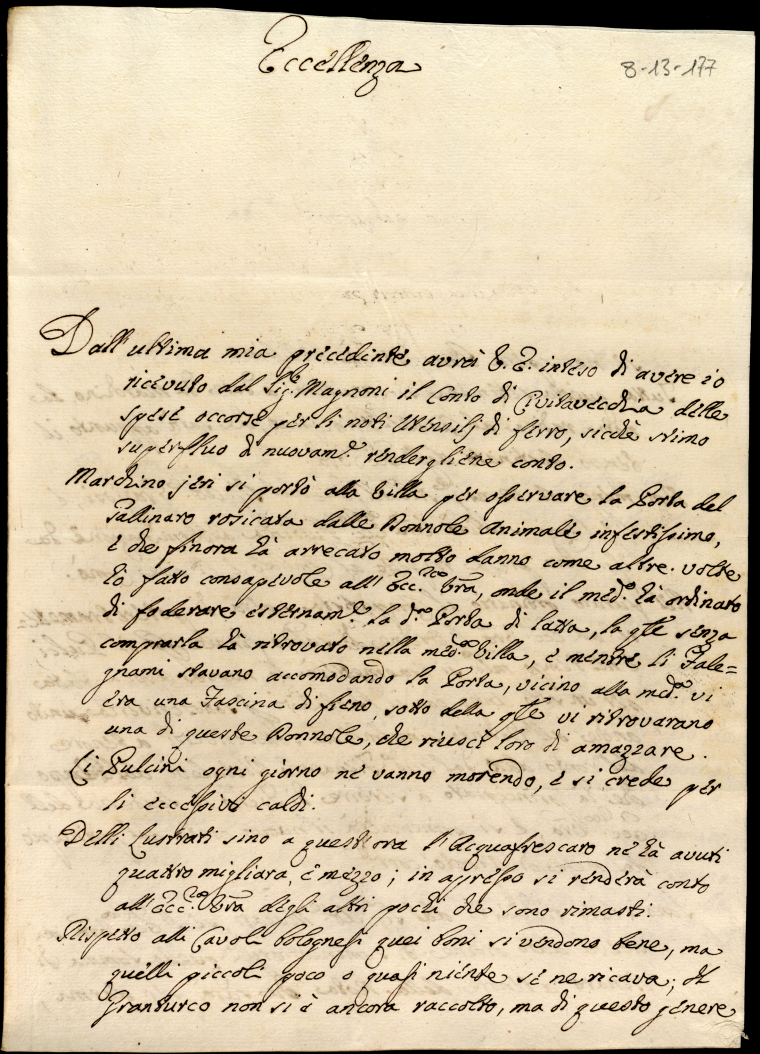 Eccellenza
8-13-177
Dall'ultima mia precedente avrà V. E. inteso di avere io
ricevuto dal Sig.e Magnoni il Conto di Civitavecchia delle
spese occorse per li noti Utensilj di ferro, sicchè stimo
superfluo di nuovam.e rendergliene conto.
Marchino jeri si portò alla Villa per osservare la Porta del
Gallinaro rosicata dalle Donnole animale infestissimo,
e che finora hà arrecato molto danno come altre volte
hò fatto consapevole all'Ecc.za Vra, onde il med.o hà ordinato
di foderare esternam.e la d.a Porta di latta, la qle senza
comprarla hà ritrovato nella med.a Villa, e mentre li Fale=
gnami stavano accomodando la Porta, vicino alla med.a vi
era una Fascina di fieno, sotto della qle vi ritrovarano
una di queste Donnole, che riuscì loro di amazzare.
Li Pulcini ogni giorno ne vanno morendo, e si crede per
li eccessivi caldi.
Delli Lustrati sino a quest'ora l'Acquafrescaro ne hà avuti
quattro migliara, e mezzo; in apresso si renderà conto
all'Ecc.za Vra degli altri pochi che sono rimasti.
Rispetto alli Cavoli bolognesi quei boni si vendono bene, ma
quelli piccoli poco o quasi niente se ne ricava; Il
Granturco non si è ancora raccolto, ma di questo genere